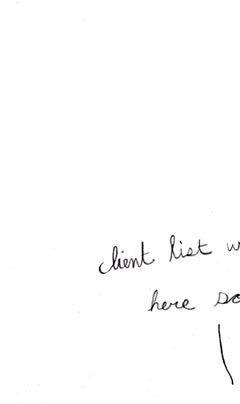 client list
here